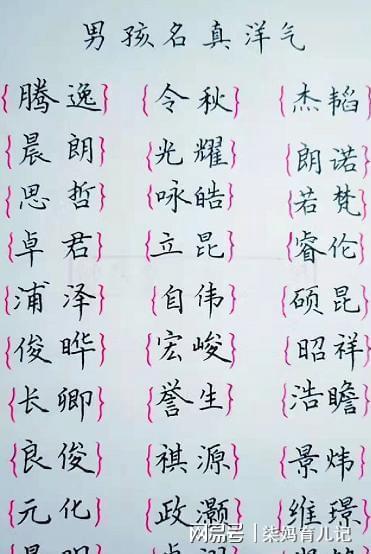 男孩名真洋气
{腾逸} {令秋} {杰韬}
{晨朗} {光耀} {朗诺}
{思哲} {咏皓} {若梵}
{卓君} {立昆} {睿伦}
{浦泽} {自伟} {硕昆}
{俊晔} {宏峻} {昭祥}
{长卿} {誉生} {浩瞻}
{良俊} {祺源} {景炜}
{元化} {政灏} {维璟}
网易号 | 柒妈育儿记